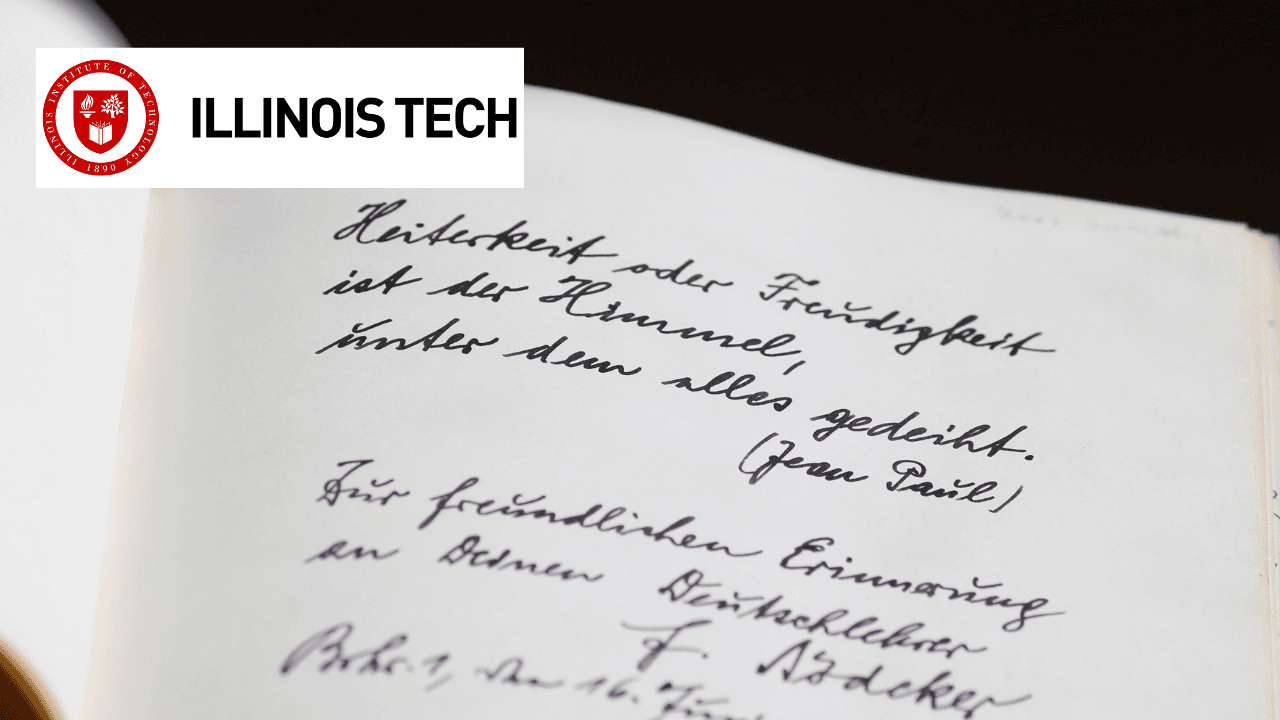 ILLINOIS INSTITUTE OF TECHNOLOGY
1890
ILLINOIS TECH
Heiterkeit oder Freudigkeit
ist der Himmel,
unter dem alles gedeiht.
(Jean Paul)
Zur freundlichen Erinnerung
an Deinen Deutschlehrer
F.
den 16. Juni